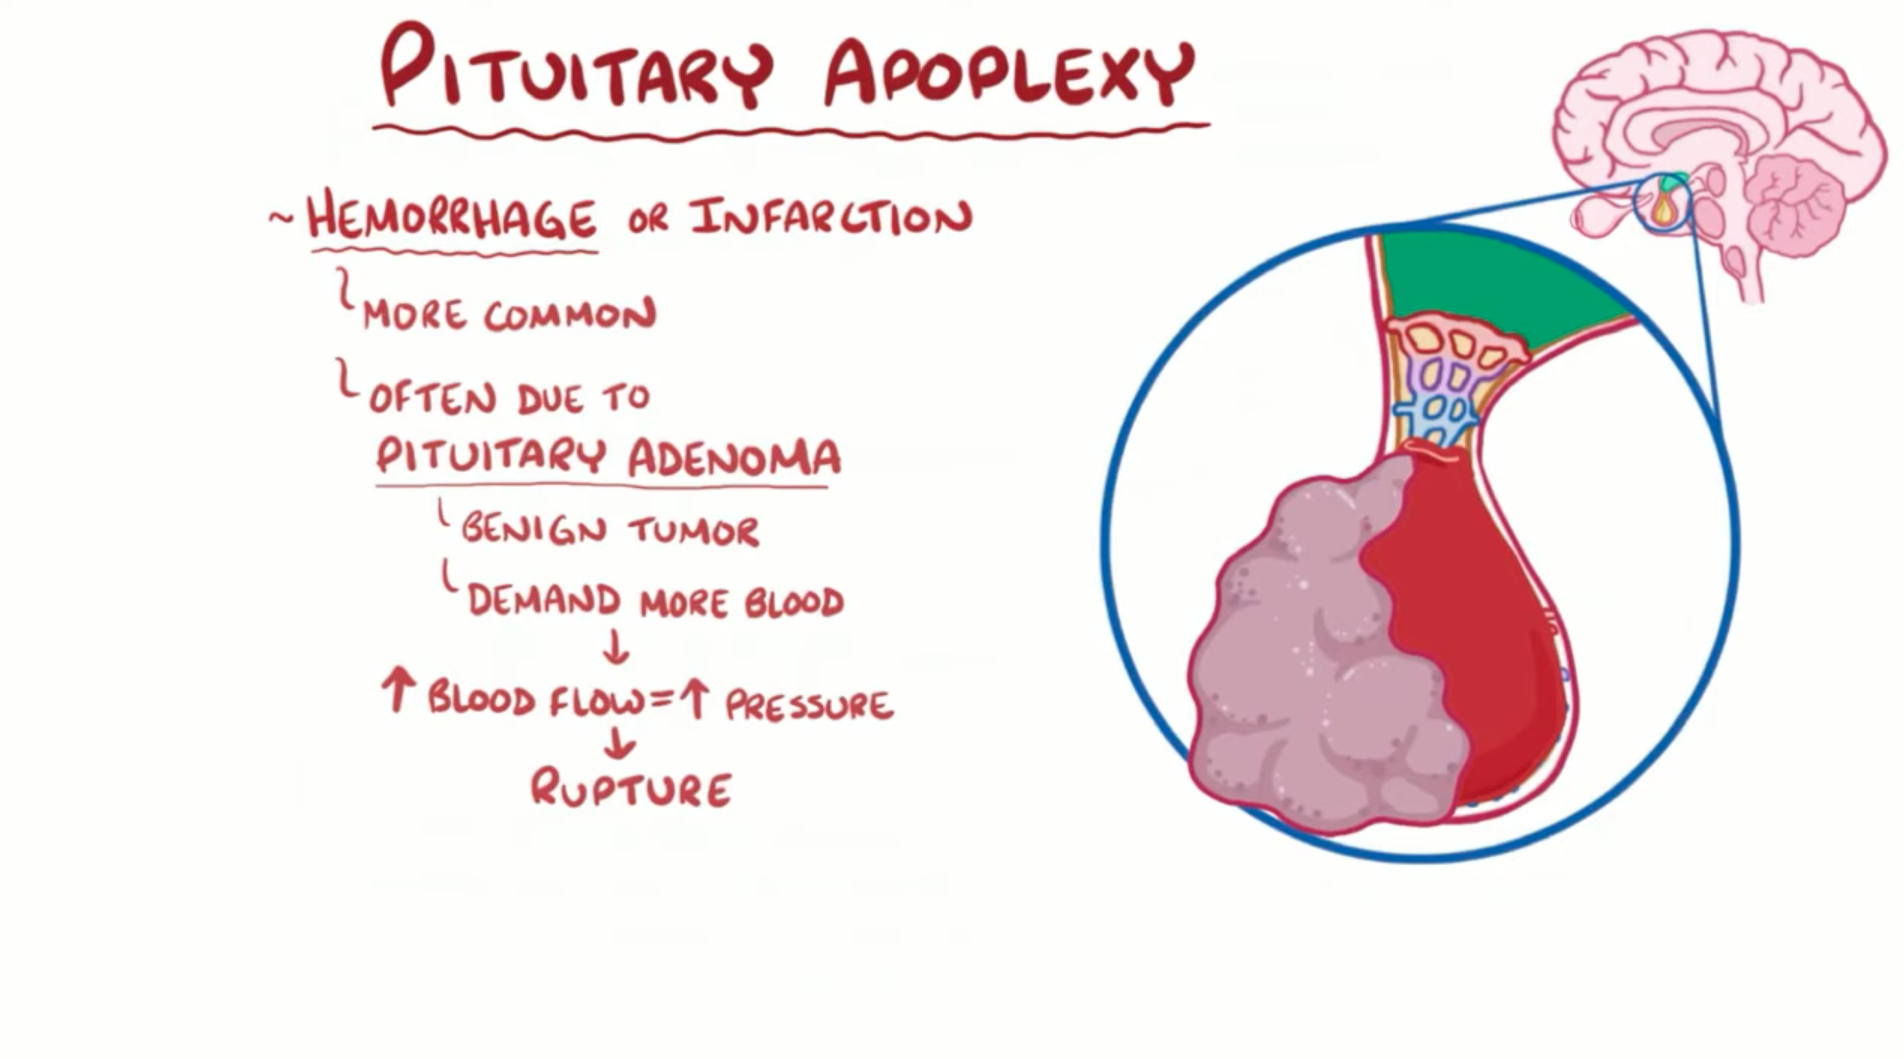 PITUITARY APOPLEXY
~ HEMORRHAGE OR INFARCTION
MORE COMMON
OFTEN DUE TO
PITUITARY ADENOMA
BENIGN TUMOR
DEMAND MORE BLOOD
↓
↑ BLOOD FLOW = ↑ PRESSURE
↓
RUPTURE